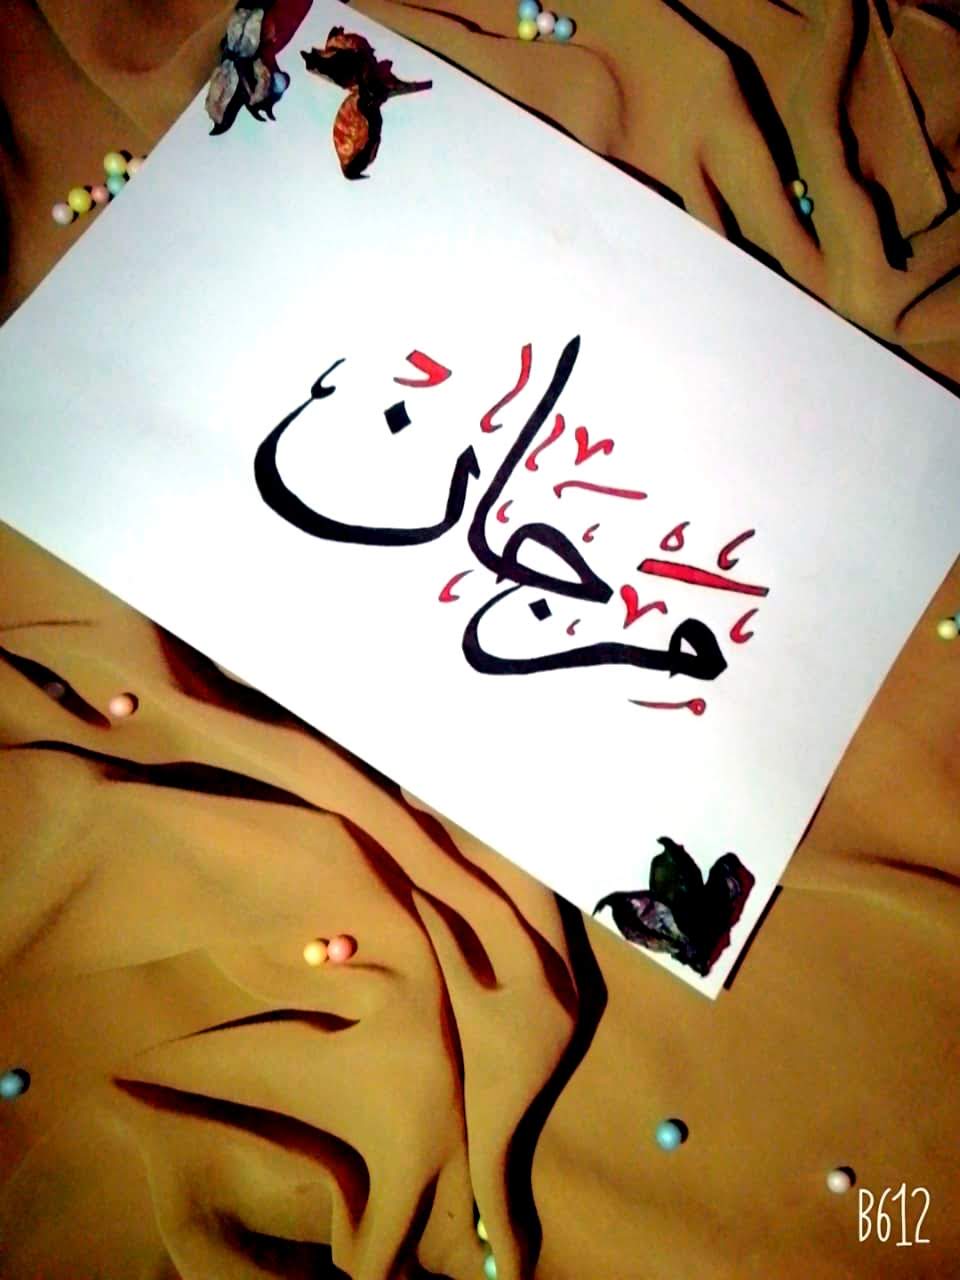 مرجان
B612